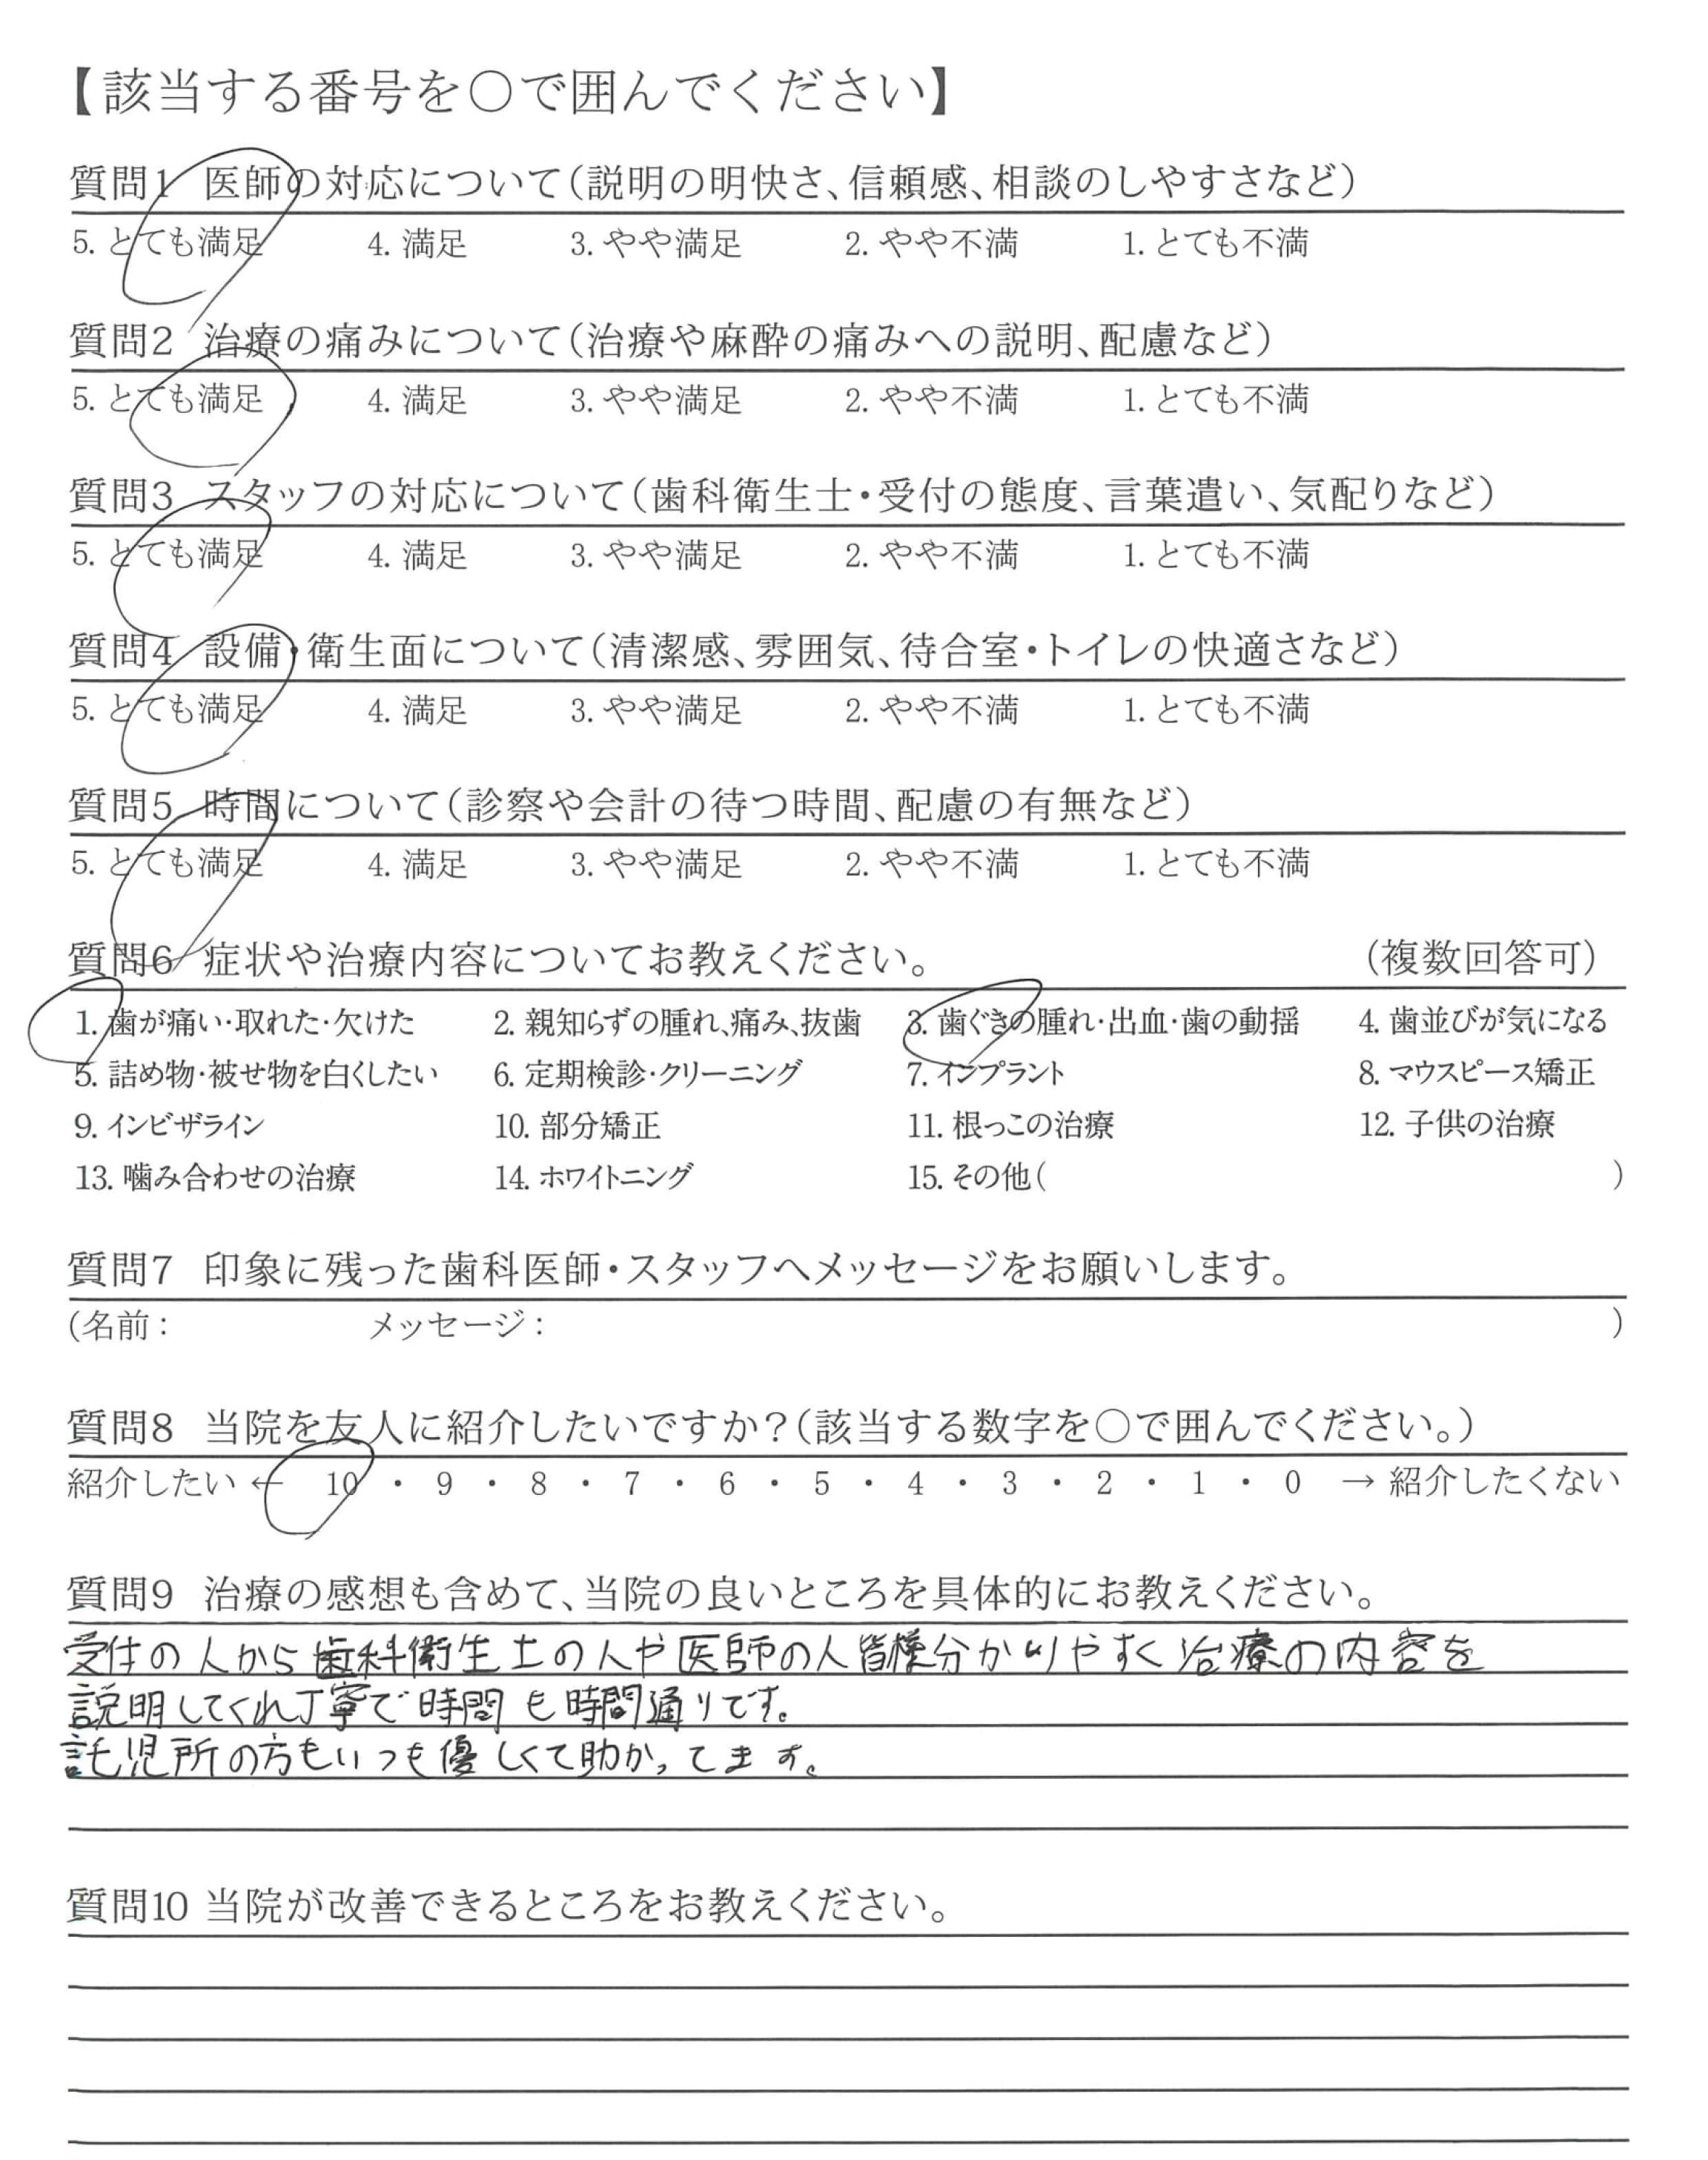 【該当する番号を○で囲んでください】
質問1 医師の対応について（説明の明快さ、信頼感、相談のしやすさなど）
5. とても満足 4. 満足 3. やや満足 2. やや不満 1. とても不満
質問2 治療の痛みについて（治療や麻酔の痛みへの説明、配慮など）
5. とても満足 4. 満足 3. やや満足 2. やや不満 1. とても不満
質問3 スタッフの対応について（歯科衛生士・受付の態度、言葉遣い、気配りなど）
5. とても満足 4. 満足 3. やや満足 2. やや不満 1. とても不満
質問4 設備・衛生面について（清潔感、雰囲気、待合室・トイレの快適さなど）
5. とても満足 4. 満足 3. やや満足 2. やや不満 1. とても不満
質問5 時間について（診察や会計の待つ時間、配慮の有無など）
5. とても満足 4. 満足 3. やや満足 2. やや不満 1. とても不満
質問6 症状や治療内容についてお教えください。 （複数回答可）
1. 歯が痛い・取れた・欠けた 2. 親知らずの腫れ、痛み、抜歯 3. 歯ぐきの腫れ・出血・歯の動揺 4. 歯並びが気になる
5. 詰め物・被せ物を白くしたい 6. 定期検診・クリーニング 7. インプラント 8. マウスピース矯正
9. インビザライン 10. 部分矯正 11. 根っこの治療 12. 子供の治療
13. 噛み合わせの治療 14. ホワイトニング 15. その他( )
質問7 印象に残った歯科医師・スタッフへメッセージをお願いします。
(名前： メッセージ： )
質問8 当院を友人に紹介したいですか？（該当する数字を○で囲んでください。）
紹介したい ← 10 ・ 9 ・ 8 ・ 7 ・ 6 ・ 5 ・ 4 ・ 3 ・ 2 ・ 1 ・ 0 → 紹介したくない
質問9 治療の感想も含めて、当院の良いところを具体的にお教えください。
受付の人から歯科衛生士の人や医師の人皆様分かりやすく治療の内容を
説明してくれ丁寧で時間も時間通りです。
託児所の方もいつも優しくて助かってます。
質問10 当院が改善できるところをお教えください。